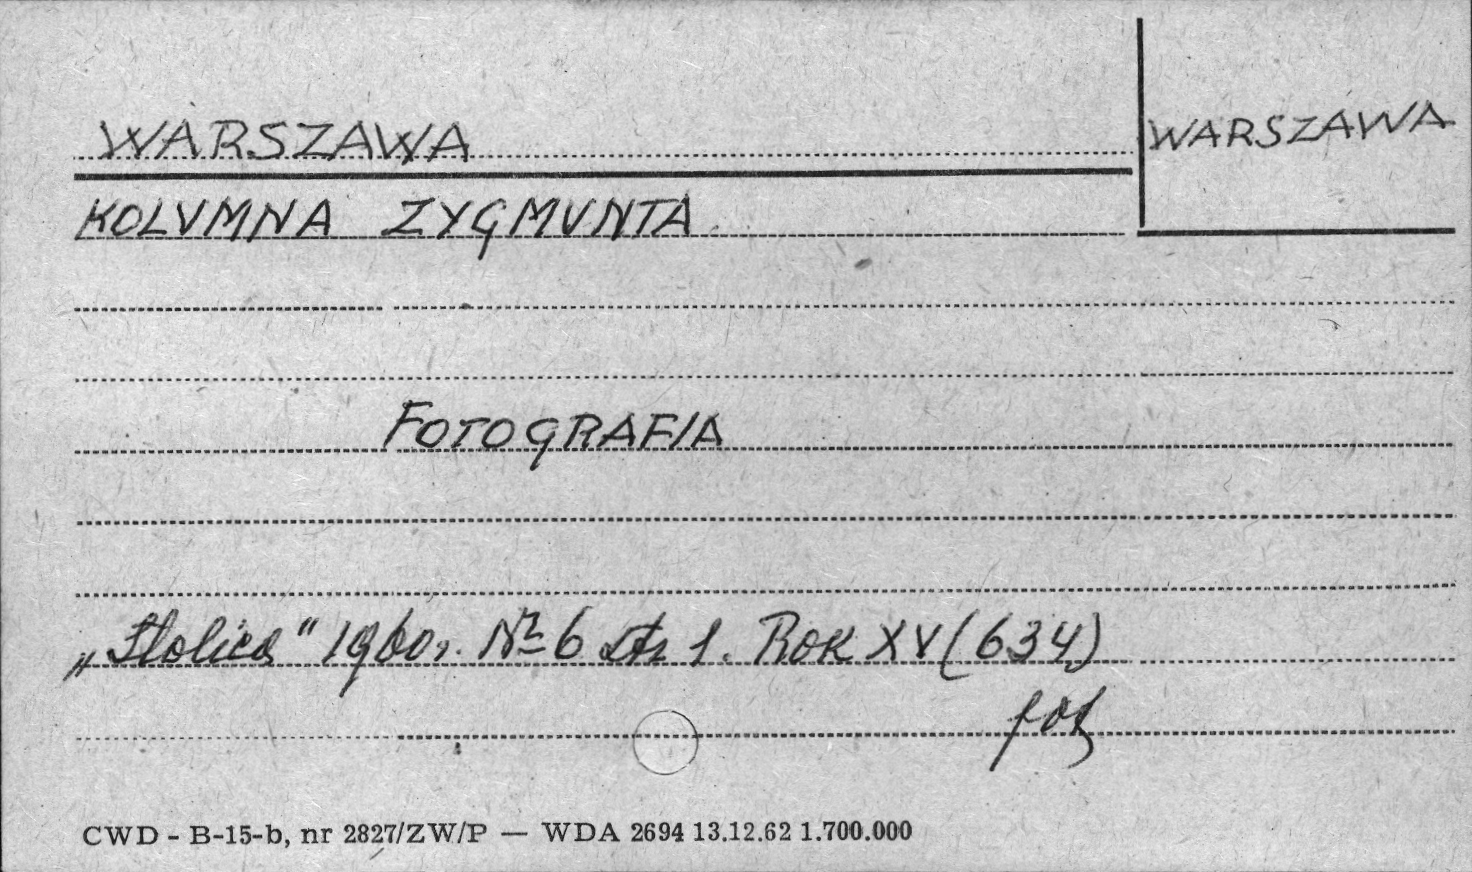 WARSZAWA
WARSZAWA
KOLUMNA ZYGMUNTA
FOTOGRAFIA
„Stolica" 1960r. Nr 6 str 1. ROK XV (634)
CWD - B-15-b, nr 2827/ZW/P — WDA 2694 13.12.62 1.700.000